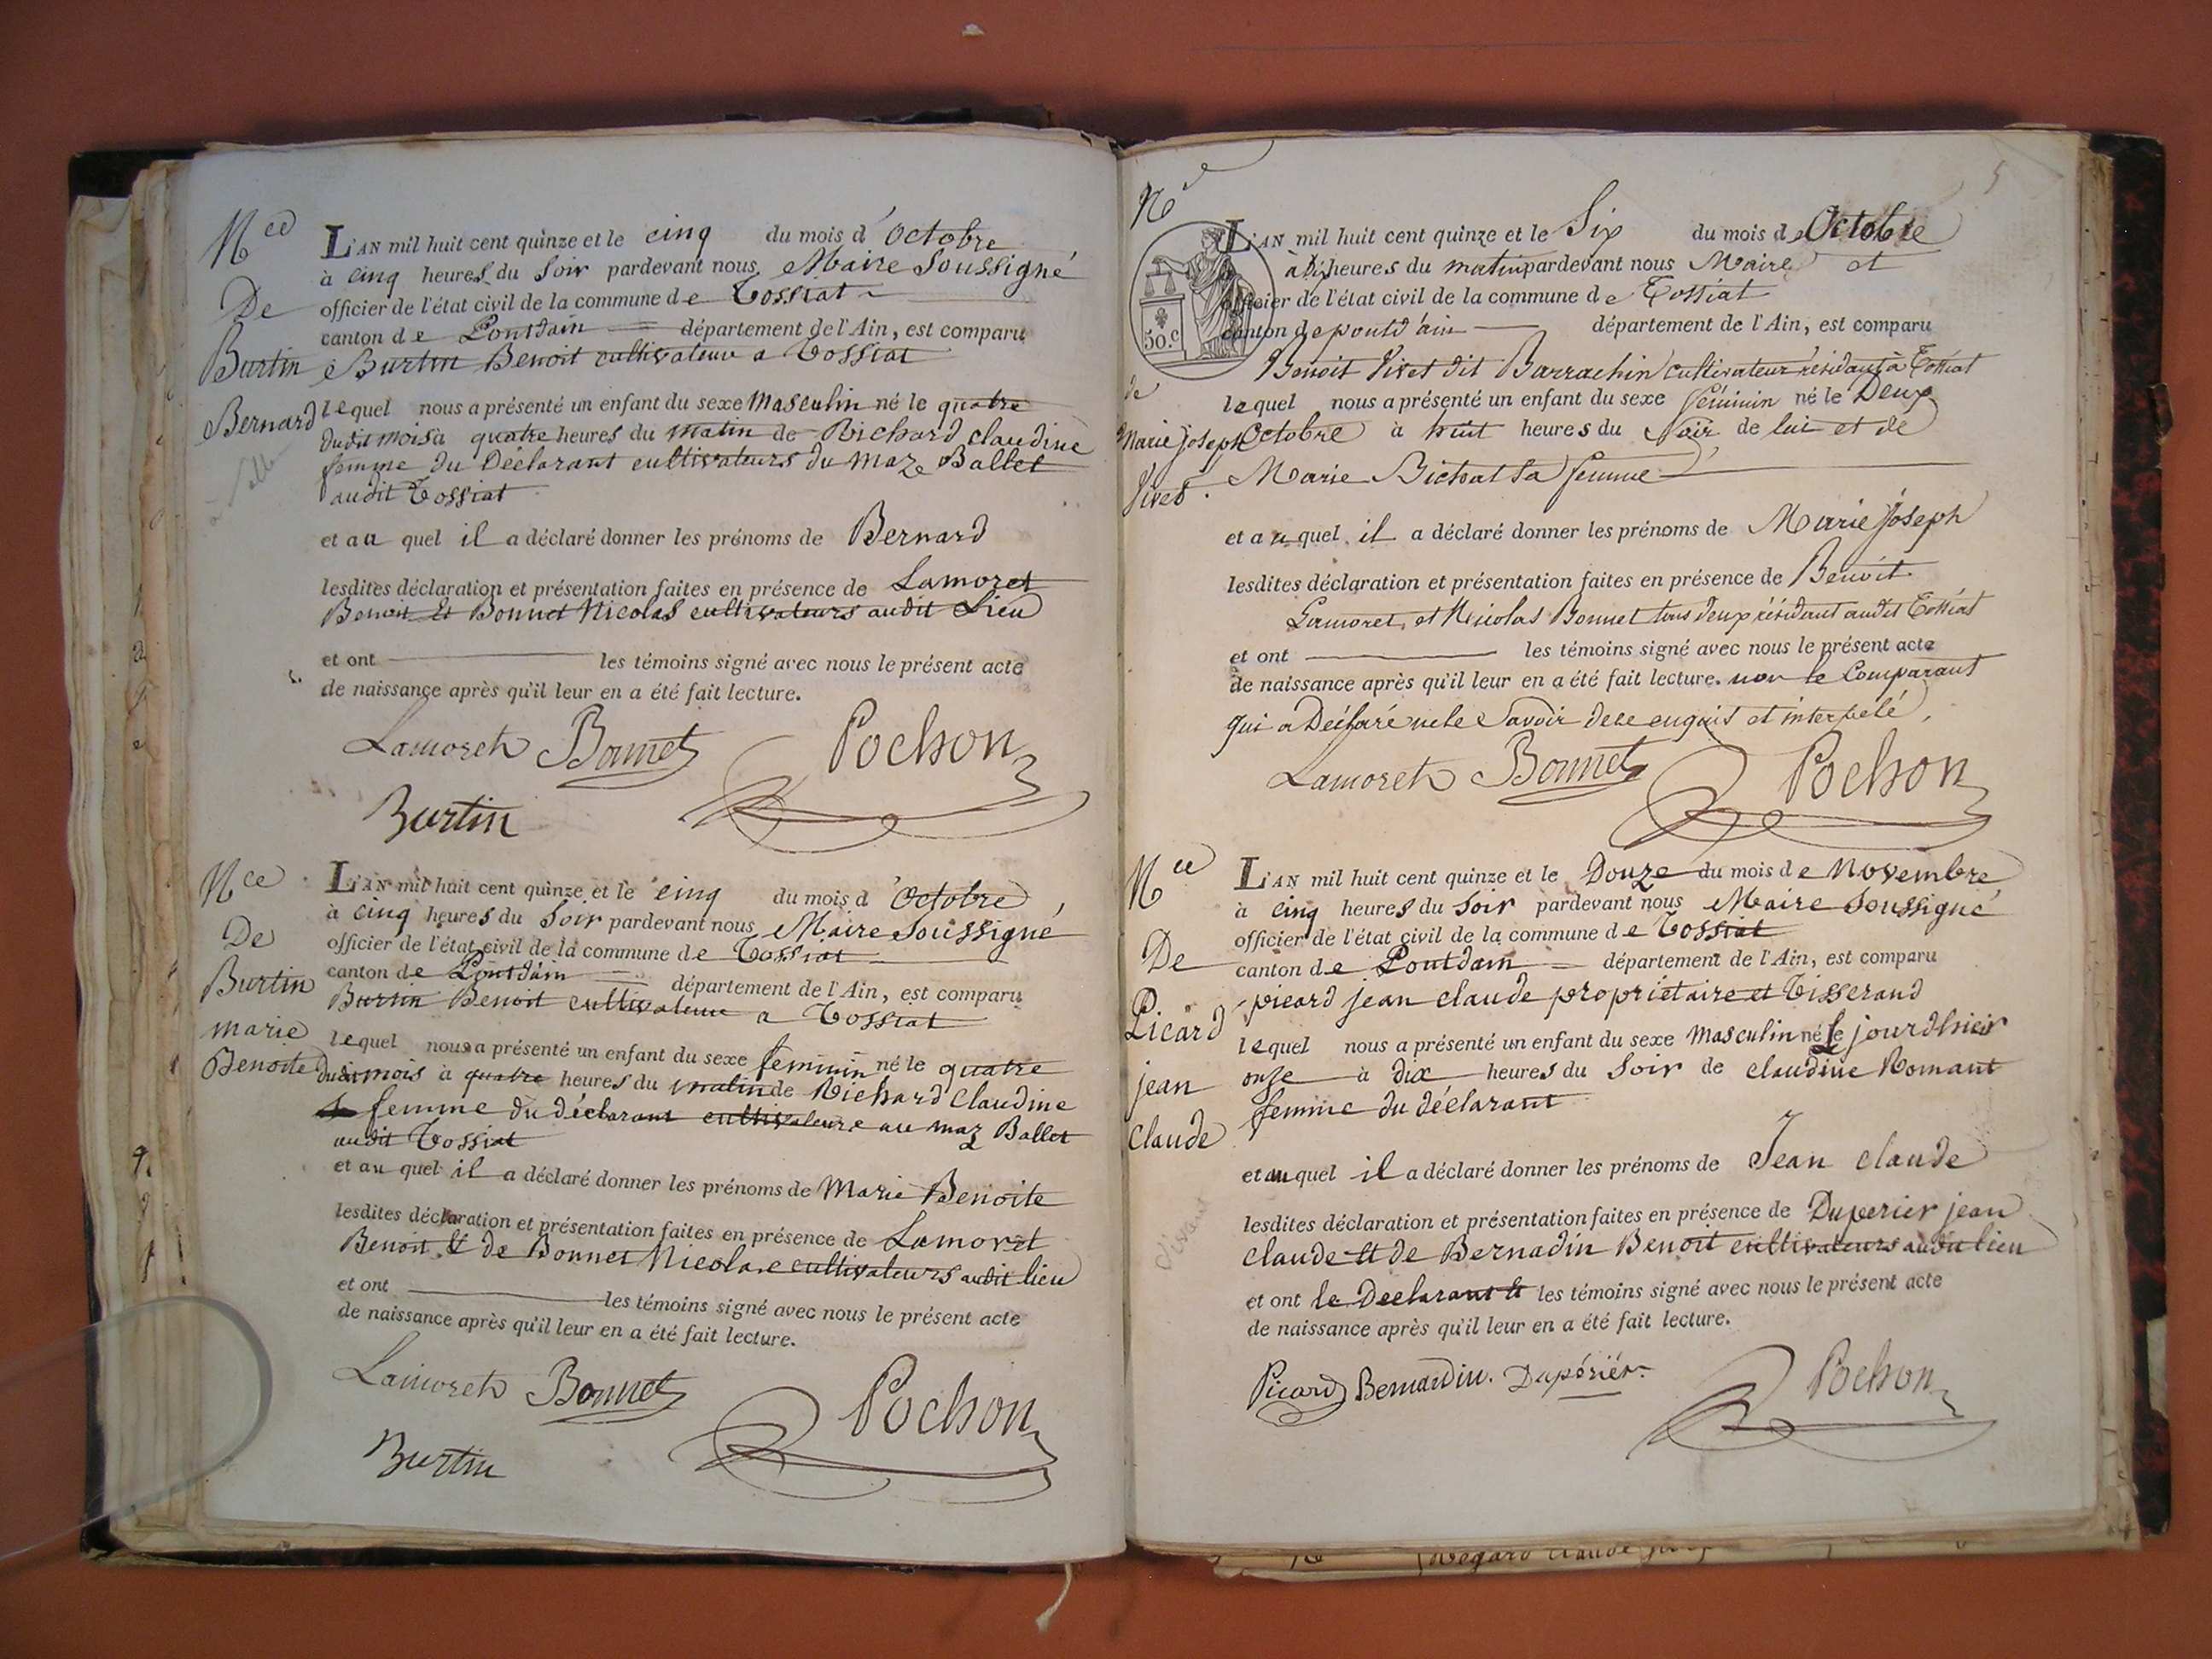 Nce
De
Burtin
Bernard
L'AN mil huit cent quinze et le cinq du mois d'Octobre
à cinq heures du Soir pardevant nous Maire Soussigné
officier de l'état civil de la commune de Tossiat
canton de Pontdain département de l'Ain, est comparu
Burtin Benoit cultivateur a Tossiat
lequel nous a présenté un enfant du sexe Masculin né le quatre
dudit mois à quatre heures du matin de Richard claudine
femme du Déclarant cultivateurs du maz Ballet
audit Tossiat
et au quel il a déclaré donner les prénoms de Bernard
lesdites déclaration et présentation faites en présence de Lamoret
Benoit et Bonnet Nicolas cultivateurs audit Lieu
et ont les témoins signé avec nous le présent acte
de naissance après qu'il leur en a été fait lecture.
Lamoreth Bonnet Pochon
Burtin
Nce
De
Burtin
marie
Benoite
L'AN mil huit cent quinze et le cinq du mois d'Octobre
à cinq heures du Soir pardevant nous Maire Soussigné
officier de l'état civil de la commune de Tossiat
canton de Pontdain département de l'Ain, est comparu
Burtin Benoit cultivateur a Tossiat
lequel nous a présenté un enfant du sexe feminin né le quatre
dudit mois à quatre heures du matin de Richard Claudine
femme du déclarant cultivateurs au maz Ballet
audit Tossiat
et au quel il a déclaré donner les prénoms de Marie Benoite
lesdites déclaration et présentation faites en présence de Lamoret
Benoit et de Bonnet Nicolas cultivateurs audit lieu
et ont les témoins signé avec nous le présent acte
de naissance après qu'il leur en a été fait lecture.
Lamoreth Bonnet Pochon
Burtin
5
Ne
50.c
de
Marie joseph
Vivet.
L'AN mil huit cent quinze et le Six du mois de Octobre
à Dix heures du matin pardevant nous Maire et
officier de l'état civil de la commune de Tossiat
canton de pontd'ain département de l'Ain, est comparu
Benoit Vivet dit Barrachin cultivateur résidant à Tossiat
lequel nous a présenté un enfant du sexe féminin né le Deux
Octobre à huit heures du Soir de lui et de
Marie Bichat sa femme
et au quel il a déclaré donner les prénoms de Marie joseph
lesdites déclaration et présentation faites en présence de Benoit
Lamoret, et Nicolas Bonnet tous deux résidant audit Tossiat
et ont les témoins signé avec nous le présent acte
de naissance après qu'il leur en a été fait lecture. non le Comparant
qui a Déclaré ne le Savoir de ce enquis et interpelé,
Lamoreth Bonnet Pochon
Nce
De
Picard
jean
Claude
L'AN mil huit cent quinze et le Douze du mois de Novembre
à cinq heures du Soir pardevant nous Maire Soussigné
officier de l'état civil de la commune de Tossiat
canton de Pontdain département de l'Ain, est comparu
picard jean claude proprietaire et Tisserand
lequel nous a présenté un enfant du sexe Masculin né le jourdhier
onze à dix heures du Soir de claudine Romant
femme du déclarant
et au quel il a déclaré donner les prénoms de Jean claude
lesdites déclaration et présentation faites en présence de Duperier jean
claude et de Bernadin Benoit cultivateurs audit lieu
et ont le Declarant et les témoins signé avec nous le présent acte
de naissance après qu'il leur en a été fait lecture.
Picard Bernardin. Dupériér Pochon